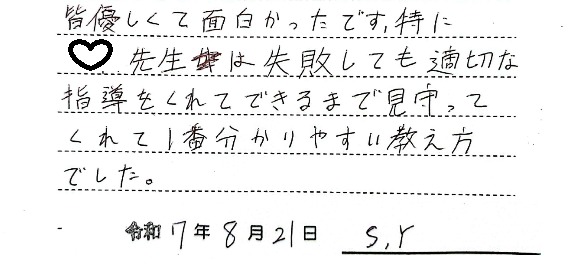 皆優しくて面白かったです,特に
♡先生は失敗しても適切な
指導をくれてできるまで見守って
くれて1番分かりやすい教え方
でした。
令和7年8月21日 S,Y